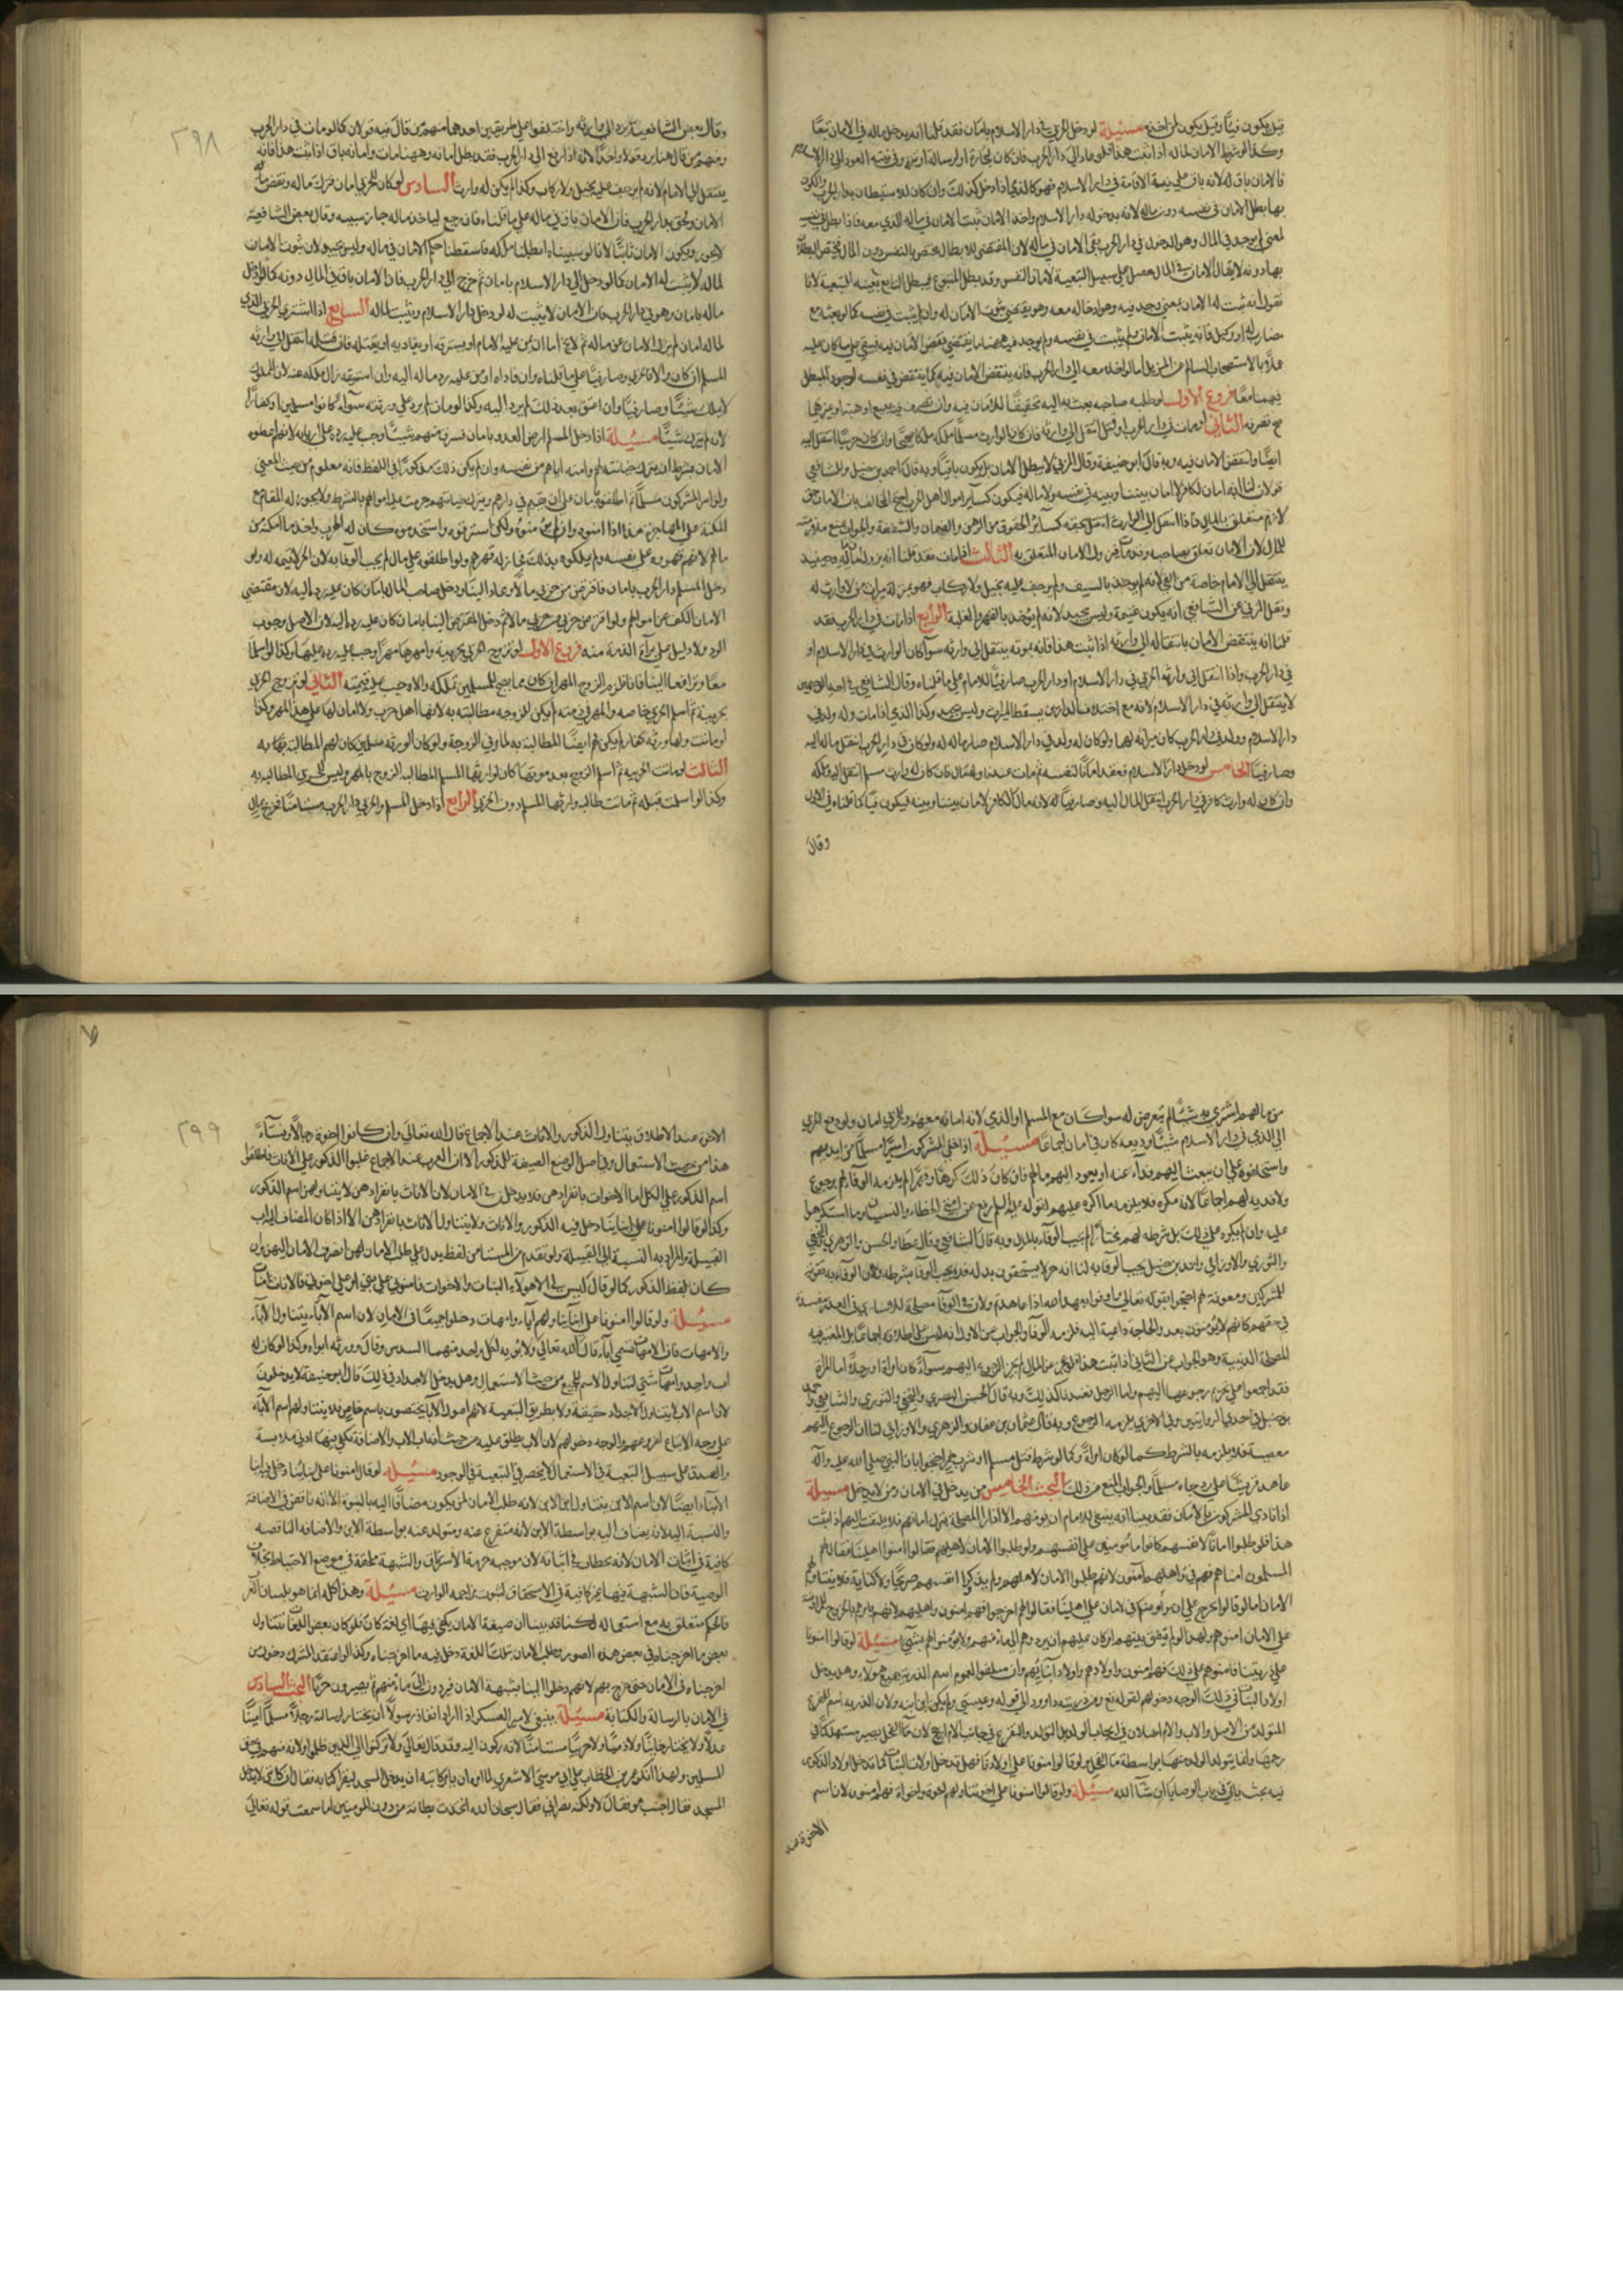 قيل يكون فيئا وقيل يكون لمن اخذه مسئلة لو دخل الحربي في دار الاسلام بامان فقد قلنا انه يدخل ماله في الامان تبعا
وكذا لو شرط الامان لماله اذا ثبت هذا فلو عاد الى دار الحرب فان كان لتجارة او لرسالة او تنزه وفي نيته العود الى دار الاسلام
فالامان باق له لانه باق على نية الاقامة في دار الاسلام فهو كالذي اذا دخل كذلك وان كان للاستيطان بدار الحرب والكون
بها بطل الامان في نفسه دون ماله لانه بدخوله دار الاسلام واخذ الامان ثبت الامان في ماله الذي معه فاذا بطل في نفسه
لمعنى لم يوجد في المال وهو الدخول في دار الحرب بقي الامان في ماله لان المقتضي للابطال يختص بالنفس دون المال فيختص البطلان
بها دونه لا يقال الامان في المال حصل على سبيل التبعية لامان النفس وقد بطل المتبوع فيبطل التابع تبعية لانا
نقول انه ثبت له الامان بمعنى وجد فيه وهو ادخاله معه وهو يقتضي ثبوت الامان له وان لم يثبت في نفسه كما لو بعثه مع
مضارب له او وكيل فانه يثبت الامان ولم يثبت في نفسه ولم يوجد فيه هيهنا ما يقتضي نقض الامان فيه فبقي على ما كان عليه
عملا بالاستصحاب السالم عن المزيل اما لو اخذه معه الى دار الحرب فانه ينتقض الامان فيه كما ينتقض في نفسه لوجود المبطل
فيهما معا فروع الاول لو طلبه صاحبه بعث به اليه تحقيقا للامان فيه وان تصرف فيه ببيع او هبة او غيرهما
صح تصرفه الثاني لو مات في دار الحرب او قتل انتقل الى وارثه فان كان الوارث مسلما ملكه ملكا صحيحا وان كان حربيا انتقل اليه
ايضا وانتقض الامان فيه وبه قال ابو حنيفة وقال المزني لا يبطل الامان بل يكون باقيا وبه قال احمد بن حنبل وللشافعي
قولان لنا انه امان لكافر لا امان بيننا وبينه في نفسه ولا ماله فيكون كسائر اموال اهل الحرب احتج المخالف بان الامان حق
لازم متعلق بالمال فاذا انتقل الى الوارث انتقل بحقه كسائر الحقوق من الرهن والضمان والشفعة والجواب المنع من ملازمته
للمال لان الامان تعلق بصاحبه الثالث اذا مات فقد قلنا انه يزول امان ماله وحينئذ
ينتقل الى الامام خاصة من الفيء لانه لم يوخذ بالسيف ولم يوجف عليه بخيل ولا ركاب فهو بمنزلة ميراث من لا وارث له
ونقل المزني عن الشافعي انه يكون غنيمة وليس بجيد لانه لم يوخذ بالقهر والغلبة الرابع اذا مات في دار الحرب فقد
قلنا انه ينتقض الامان بانتقاله الى وارثه اذا ثبت هذا فانه بموته ينتقل الى وارثه سواء كان الوارث في دار الاسلام او
في دار الحرب واذا انتقل الى وارثه الحربي في دار الاسلام او دار الحرب صار فيئا للامام على ما قلناه وقال الشافعي في احد الوجهين
لا ينتقل الى وارثه في دار الاسلام لانه مع اختلاف الدارين يسقط الميراث وليس بجيد وكذا الذي اذا مات وله ولد في
دار الاسلام وولد في دار الحرب كان ميراثه لهما ولو كان له ولد في دار الاسلام صار ماله له ولو كان في دار الحرب انتقل ماله اليه
وصار فيئا الخامس لو دخل دار الاسلام فعقد امانا لنفسه ثم مات عندنا وله مال فان كان له وارث مسلم انتقل اليه وملكه
وان كان له وارث كافر في دار الحرب انتقل المال اليه وصار فيئا لانه مال لكافر لا امان بيننا وبينه فيكون فيئا كما قلناه في الاول
وقال
٢٩٨
وقال بعض الشافعية يرد الى وارثه واختلفوا على طريقين احدهما منهم من قال فيه قولان كما لو مات في دار الحرب
ومنهم من قال هنا يرد قولا واحدا لانه اذا رجع الى دار الحرب فقد بطل امانه وههنا مات وامانه باق اذا ثبت هذا فانه
ينتقل الى الامام لانه لم يوجف عليه بخيل ولا ركاب وكذا لو لم يكن له وارث السادس لو كان للحربي امان فترك ماله ونقض
الامان ولحق بدار الحرب فان الامان باق في ماله على ما قلناه فان رجع لياخذ ماله جاز سبيه وقال بعض الشافعية
لا يجوز ويكون الامان ثابتا لانا لو سبيناه ابطلنا ملكه فاسقطنا حكم الامان في ماله وليس بجيد لان ثبوت الامان
لماله لا يثبت له الامان كما لو دخل الى دار الاسلام بامان ثم خرج الى دار الحرب فان الامان باق في المال دونه كما لو دخل
ماله بامان وهو في دار الحرب فان الامان لا يثبت له لو دخل دار الاسلام ويثبت لماله السابع اذا اشترى الحربي الذي
لماله امان لم يزل الامان عن ماله ثم لا يخ اما ان يمن عليه الامام او يسترقه او يفاديه او يقتله فان قتله انتقل الى وارثه
المسلم ان كان والا فالحربي وصار فيئا على ما قلناه وان فاداه او من عليه رد ماله اليه وان استرقه زال ملكه عنه لان المملوك
لا يملك شيئا وصار فيئا وان اعتق بعد ذلك لم يرد اليه وكذا لو مات لم يرد على ورثته سواء كانوا مسلمين او كفارا
لانه لم يترك شيئا مسئلة اذا دخل المسلم ارض العدو بامان فسرق منهم شيئا وجب عليه رده على اربابه لانهم اعطوه
الامان بشرط ان يترك خيانته لهم وامنه اياهم من نفسه وان لم يكن ذلك مذكورا في اللفظ فانه معلوم من حيث المعنى
ولو اسر المشركون مسلما ثم اطلقوه بامان على ان يقيم في دارهم ويترك خيانتهم حرمت عليه اموالهم بالشرط ولا يجوز له المقام مع
المكنة على المهاجرة هذا اذا امنوه وان لم يؤمنوه ولكن استرقوه واستخدموه كان له الهرب واخذ ما امكنه من
مالهم لانهم قهروه على نفسه ولم يملكوه بذلك فجاز له قهرهم ولو اطلقوه على مال لم يجب الوفا به لان الحر لا قيمة له ولو
دخل المسلم دار الحرب بامان فاقترض من حربي مالا وعاد الينا ودخل صاحب المال بامان كان عليه رده اليه لان مقتضى
الامان الكف عن اموالهم ولو اقترض حربي من حربي مالا ثم دخل المقترض الينا بامان كان عليه رده اليه لان الاصل وجوب
الرد ولا دليل على براءة الذمة منه فروع الاول لو تزوج الحربي بحربية وامهرها مهرا وجب عليه رده عليها وكذا لو اسلما
معا وترافعا الينا فانا نلزم الزوج المهر ان كان مما يصح للمسلمين تملكه والا وجب عليه قيمته الثاني لو تزوج الحربي
بحربية ثم اسلم الحربي خاصة والمهر في ذمته لم يكن للزوجة مطالبته به لانها اهل حرب ولا امان لها على هذا المهر وكذا
لو ماتت ولها ورثة كفار لم يكن لهم ايضا المطالبة به لما في الزوجة ولو كان الورثة مسلمين كان لهم المطالبة به
الثالث لو ماتت الحربية ثم اسلم الزوج بعد موتها كان لوارثها المسلم المطالبة الزوج بالمهر وليس للحربي المطالبة به
وكذا لو اسلمت قبله ثم ماتت طالبه وارثها المسلم دون الحربي الرابع اذا دخل المسلم او الحربي دار الحرب مستامنا فخرج بمال
من مالهم اشترى به شيئا لم يتعرض له سواء كان مع المسلم او الذي لانه امانة معهم وللحربي امان ولو دفع الحربي
الى الذي في دار الاسلام شيئا وديعة كان في امان اجماعا مسئلة اذا خلى المشركون اسيرا مسلما من ايديهم
واستحلفوه على ان يبعث اليهم فداء عنه او يعود اليهم مالهم فان كان ذلك كرها وقهرا لم يلزمه الوفاء لهم برجوع
ولا فدية لهم اجماعا لانه مكره فلا يلزمه ما اكره عليه لقوله عليه السلم رفع عن امتي الخطاء والنسيان وما استكرهوا
عليه وان لم يكره على ذلك بل شرطه لهم مختارا لم يجب الوفاء بالمال وبه قال الشافعي وقال عطا والحسن والزهري والنخعي
والثوري والاوزاعي واحمد بن حنبل يجب الوفا به لنا انه حر لا يستحقون بدله فلا يجب الوفا بشرطه ولان الوفاء به تقوية
للمشركين ومعونة لهم احتجوا بقوله تعالى واوفوا بعهد الله اذا عاهدتم ولان في الوفاء مصلحة للاسارى وفي الغدر مفسدة
في حقهم لانهم لا يؤمنون بعده والحاجة داعية اليه فلزمه الوفا والجواب عن الاول انه ليس على اطلاقه اجماعا بل المعتبر فيه
المصلحة الدينية وهو الجواب عن الثاني اذا ثبت هذا فلو عجز عن المال لم يجز الرجوع اليهم سواء كان امراة او رجلا اما المراة
فقد اجمعوا على تحريم رجوعها اليهم واما الرجل فعندنا كذلك وبه قال الحسن البصري والنخعي والثوري والشافعي واحمد
بن حنبل في احدى الروايتين وفي الاخرى يلزمه الرجوع وبه قال عثمان بن عفان والزهري والاوزاعي لنا ان الرجوع اليهم
معصية فلا يلزمه بالشرط كما لو كان امراة وكما لو شرط قتل مسلم او شرب خمر احتجوا بان النبي صلى الله عليه وآله
عاهد قريشا على رد من جاء مسلما والجواب المنع من ذلك البحث الخامس من يدخل في الامان ومن لا يدخل مسئلة
اذا نادى المشركون بالامان فقد بينا انه ينبغي للامام ان يؤمنهم الا اذا راى المصلحة بترك امانهم فلا يلتفت اليهم اذا ثبت
هذا فلو طلبوا امانا لانفسهم كانوا مامونين على انفسهم ولو طلبوا الامان لاهليهم فقالوا امنوا اهلينا فقال لهم
المسلمون امناهم فهم في واهليهم آمنون لانهم طلبوا الامان لاهليهم ولم يذكروا انفسهم صريحا ولا كناية فلا يتناولهم
الامان اما لو قالوا نخرج على ان
على الامان امنوهم
على ذريتنا فامنوهم على ذلك فهم امنون واولادهم واولاد ابنائهم وان سفلوا لعموم اسم الذرية جميع هؤلاء وهل يدخل
اولاد البنات في ذلك الوجه دخولهم لقوله تع ومن ذريته داوود الى قوله وعيسى ولم يكن ابن ابنه ولان الذرية اسم للفرع
المتولد من الاصل والاب والام اصلان في
فيه بحث ياتي في باب الوصايا ان شاء الله مسئلة ولو قالوا امنونا على اخوتنا ولهم اخوة واخوات فهم امنون لان اسم
الاخوة عند
٢٩٩
الاخوة عند الاطلاق يتناول الذكور والاناث عند الاجماع قال الله تعالى وان كانوا اخوة رجالا ونساء
هذا من حيث الاستعمال وفي اصل الوضع الصيغة للذكور الا ان العرب عند الاجماع غلبوا الذكور على الاناث واطلقوا
اسم الذكور على الكل اما الاخوات بانفرادهن فلا يدخلن في الامان لان الاناث بانفرادهن لا يتناولهن اسم الذكور
وكذا لو قالوا امنونا على ابنائنا دخل فيه الذكور والاناث ولا يتناول الاناث بانفرادهن الا اذا كان المضاف اليه اب
القبيلة والمراد به النسبة الى القبيلة ولو تقدم من المستامن لفظ يدل على طلب الامان لهن انصرف الامان اليهن وان
كان بلفظ الذكور كما لو قال ليس لي الا هؤلاء البنات والاخوات فامنوني على بني او على اخوتي فالاناث امنات
مسئلة ولو قالوا امنونا على ابائنا ولهم آباء وامهات دخلوا جميعا في الامان لان اسم الآباء يتناول الآباء
والامهات فان الامهات تسمى آباء قال الله تعالى ولابويه لكل واحد منهما السدس وقال وورثه ابواه وكذا لو كان له
اب واحد وامهات شتى لتناول الاسم للجميع من حيث الاستعمال وهل يدخل الاجداد في ذلك قال ابو حنيفة لا يدخلون
لان اسم الاب لا يتناول الاجداد حقيقة ولا بطريق التبعية لانهم اصول الآباء يختصون باسم خاص فلا يتناولهم اسم الآباء
على وجه الاتباع لفروعهم والوجه دخولهم لان الاب يطلق عليه من حيث انه اب الاب والاضافة تكفي فيها ادنى ملابسة
والصدق على سبيل التبعية في الاستعمال لا يختص في التبعية في الوجود مسئلة لو قال امنونا على ابنائنا دخل فيه ابنا
الابناء ايضا لان اسم الابن يتناول ابن الابن لانه طلب الامان لمن يكون مضافا اليه بالبنوة الا انه ناقص في الاضافة
والنسبة اليه لانه يضاف اليه بواسطة الابن لانه متفرع عنه ومتولد عنه بواسطة الابن والاضافة الناقصة
كافية في اثبات الامان لانه يحتاط في اثباته لان موجبه حرمة الاسترقاق والشبهة ملحقة في موضع الاحتياط بخلاف
الوصية فان الشبهة فيها غير كافية في الاستحقاق لثبوت مزاحمة الوارث مسئلة وهذا كله انما هو بلسان العرب
فالحكم متعلق به مع استعماله لكنا قد بينا ان صيغة الامان يكفي فيها اي لغة كانت فلو كان بعض اللغات تتناول
بعض ما اخرجناه في بعض هذه الصور وطلب الامان بتلك اللغة دخل فيه ما اخرجناه وكذا لو اعتقد المشرك دخول من
اخرجناه في الامان حتى خرج بهم لانهم دخلوا الينا بشبهة الامان فيردون الى مامنهم ثم يصيرون حربا البحث السادس
في الامان بالرسالة والكتابة مسئلة ينبغي لامير العسكر اذا اراد انفاذ رسول ان يختار لرسالته رجلا مسلما امينا
عدلا ولا يختار خائنا ولا ذميا ولا حربيا مستامنا لانه ركون اليه وقد قال تعالى ولا تركنوا الى الذين ظلموا ولانه متهم في حق
المسلمين ولهذا انكر عمر بن الخطاب على ابي موسى الاشعري لما امره ان يامر كاتبه ان يدخل المسجد ليقرا كتابه فقال ان كاتبي لا يدخل
المسجد فقال اجنب هو فقال لا ولكنه نصراني فقال سبحان الله اتخذت بطانة من دون المومنين اما سمعت قوله تعالى